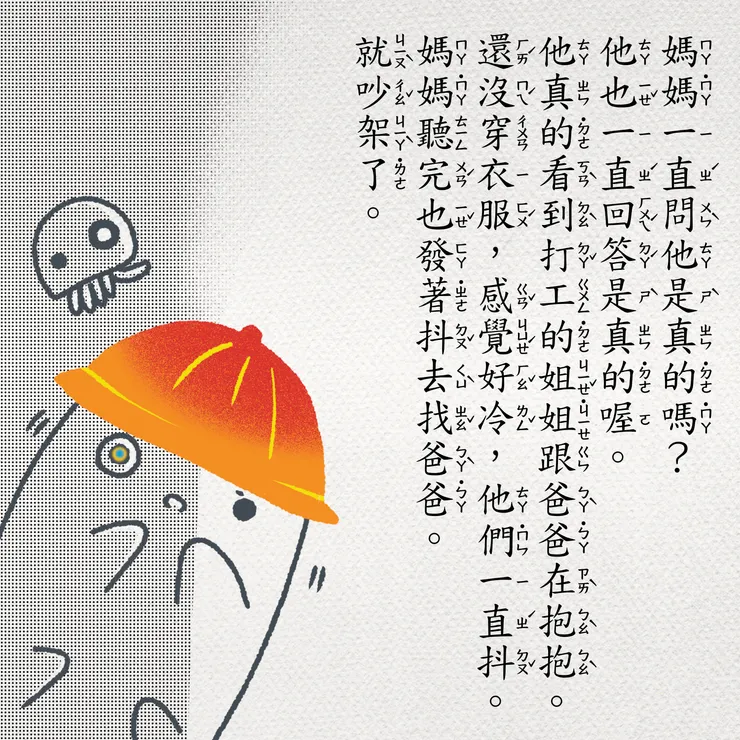 媽媽一直問他是真的嗎？
他也一直回答是真的喔。
他真的看到打工的姐姐跟爸爸在抱抱。
還沒穿衣服，感覺好冷，他們一直抖。
媽媽聽完也發著抖去找爸爸。
就吵架了。